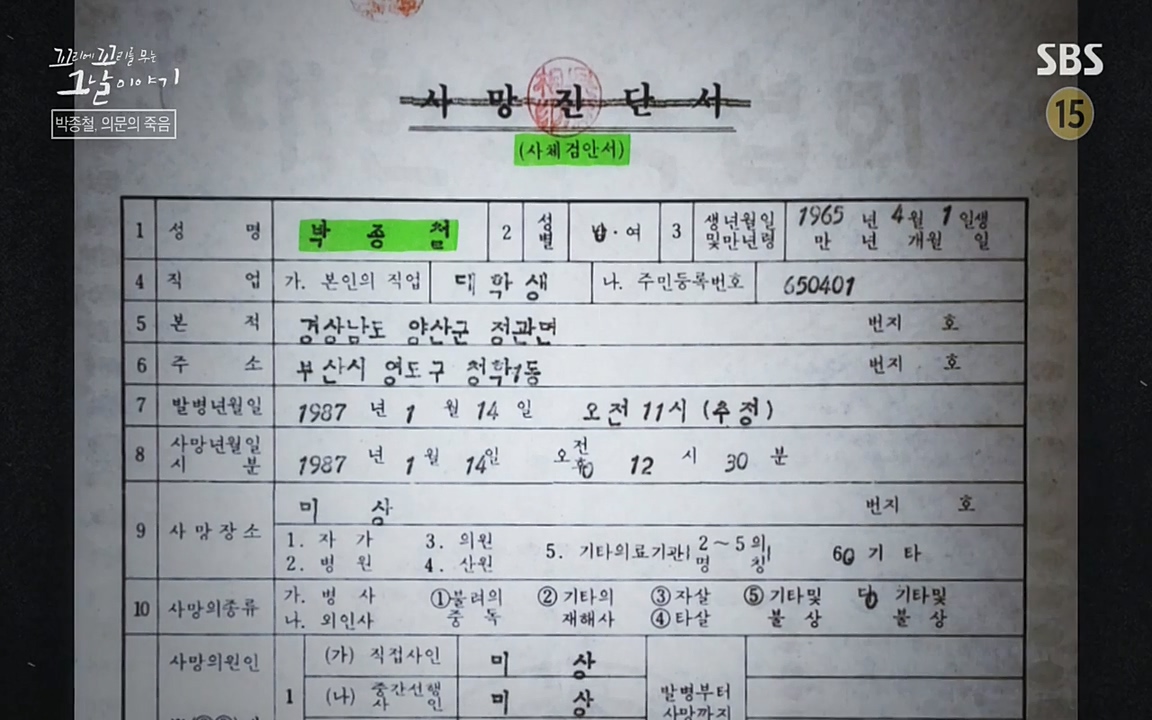 꼬리에 꼬리를 무는
그날 이야기
박종철, 의문의 죽음
SBS
15
사 망 진 단 서
(사체검안서)
1 성 명 박 종 철 2 성별 남·여 3 생년월일 및만년령 1965 년 4월 1일생
만 년 개월 일
4 직 업 가. 본인의 직업 대 학 생 나. 주민등록번호 650401
5 본 적 경상남도 양산군 정관면 번지 호
6 주 소 부산시 영도구 청학1동 번지 호
7 발병년월일 1987 년 1 월 14 일 오전 11시 (추정)
8 사망년월일 시 분 1987 년 1 월 14일 오 전 후 12 시 30 분
9 사망장소 미 상 번지 호
1. 자 가 3. 의원 5. 기타의료기관 2～5의 6 기 타
2. 병 원 4. 산원 명 칭
10 사망의종류 가. 병 사 ①불려의 ② 기타의 ③자살 ⑤ 기타및 다 기타및
나. 외인사 중 독 재해사 ④타살 불 상 불 상
사망의원인 1 (가) 직접사인 미 상
(나) 중간선행사인 미 상 발병부터
사망까지